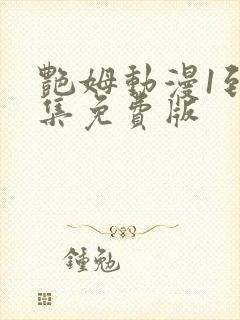 艷姆動漫1到
集免費版
鍾勉